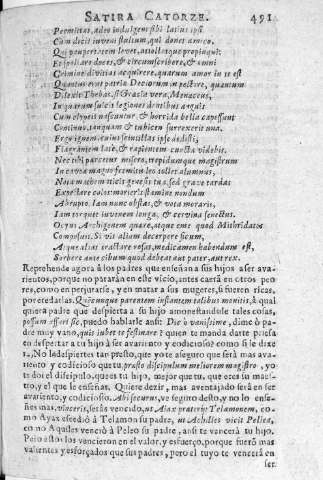 SATIRA CATORZE. 491
Permittas, adeo indulgent sibi latius ipsi
Cum dicis iuveni stultum, qui donet amico,
Qui paupertatem levet, attollatque propinqui:
Et spoliare doces, & circumscribere, & omni
Crimine divitias acquirere, quarum amor in te est
Quantus erat patriæ Deciorum in pectore, quantum
Dilexit Thebas, si Græcia vera, Menæceus,
In quarum sulcis legiones dentibus anguis
Cum clypeis nascuntur & horrida bella capessunt
Continuo, tanquam & tubicen surrexerit una.
Ergo ignem, cuius scintillas ipse dedisti,
Flagrantem late, & rapientem cuncta videbis.
Nec tibi parcetur misero, trepidumque magistrum
In cavea magno fremitu leo tollet alumnus,
Nota mathematicis genesis tua, sed grave tardas
Expectare colos: morieris stamine nondum
Abrupto. Iam nunc obstas, & vota moraris,
Iam torquet iuvenem longa, & cervina senectus.
Ocyus Archigenem quære, atque eme quod Mithridates
Composuit. Si vis aliam decerpere ficum,
Atque alias tractare rosas, medicamen habendum est,
Sorbere ante cibum quod debeat aut pater, aut rex.
Reprehende agora à los padres que enseñan a sus hijos a ser ava-
rientos, porque no pararàn en este vicio, antes caerà en otros peo
res, como en perjurarse, y en matar a sus mugeres, si fueren ricas,
por eredarlas. Quòcumque parentem instantem talibus monitis, à qual
quiera padre que despierta a su hijo amonestandole tales cosas,
possum affari sic, puedo hablarle ansi: Dic ò vanissime, dime ò pa-
dre muy vano, quis iubet te festinare? quien te manda darte priesa
en despertar a tu hijo à ser avariento y codicioso? como si le dixe
ra, No le despiertes tan presto, que yo te aseguro que serà mas ava
riento y codicioso que tu. præsto discipulum meliorem magistro, yo
te doi el discipulo, que es tu hijo, mejor que tu, que eres su maes-
tro, y el que le enseñas. Quiere dezir, mas aventajado serà en ser
avariento, y codicioso. Abi securus, ve seguro desto, y no lo ense-
ñes mas, vinceris, seràs vencido, ut Aiax præteriit Telamonem, co-
mo Ayax escediò à Telamon su padre, ut Achilles vicit Pelea,
como Aquiles venciò à Peleo su padre, ansi te vencerà tu hijo.
Pero estos los vencieron en el valor, y esfuerço, porque fuerõ mas
valientes y esforçados que sus padres, pero el tuyo te vencerà en
ser